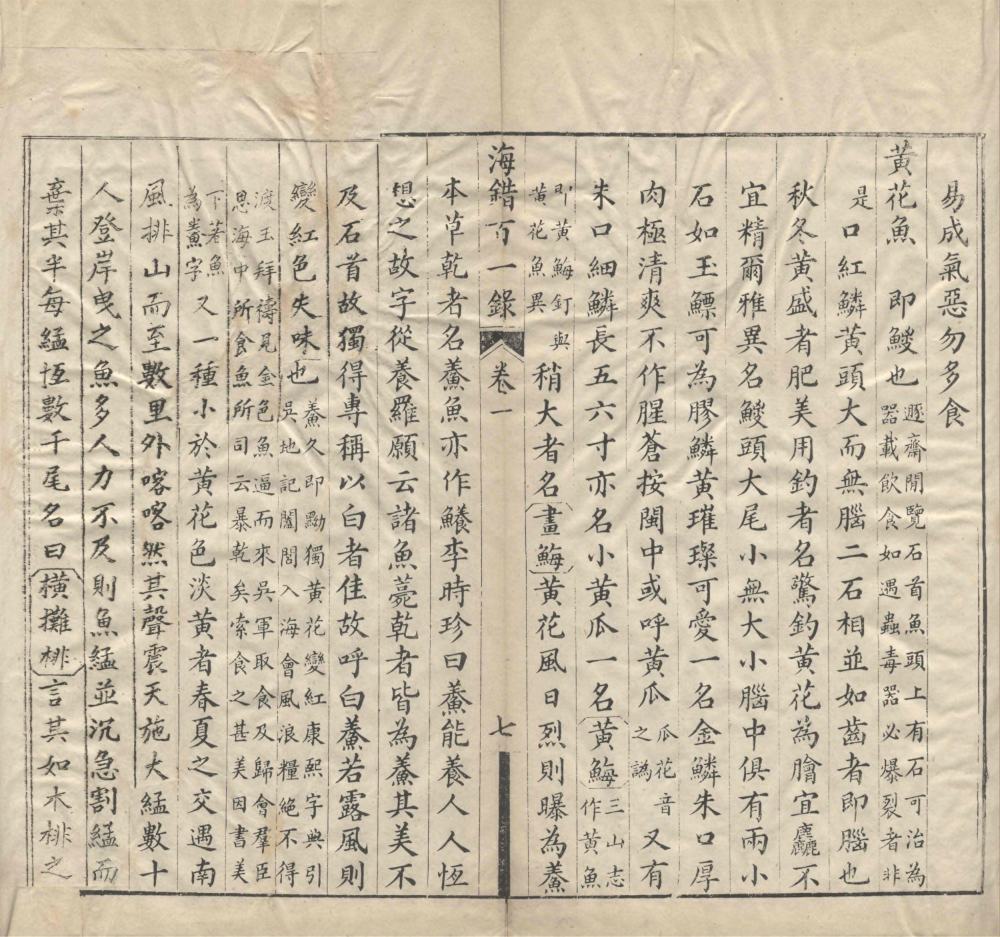 易成氣惡勿多食
黃花魚　即鯼也遯齋閒覽石首魚頭上有石可治為
器載飲食如遇蟲毒器必爆裂者非
是口紅鱗黃頭大而無腦二石相並如齒者即腦也
秋冬黃盛者肥美用釣者名驚釣黃花為膾宜麤不
宜精爾雅異名鯼頭大尾小無大小腦中俱有兩小
石如玉鰾可為膠鱗黃璀璨可愛一名金鱗朱口厚
肉極清爽不作腥蒼按閩中或呼黃瓜瓜花音
之譌又有
朱口細鱗長五六寸亦名小黃瓜一名黃䱕三山志
作黃魚
即黃䱕釘與
黃花魚異稍大者名畫䱕黃花風日烈則曝為鯗
海錯百一錄　卷一　七
本草乾者名鯗魚亦作鱶李時珍曰鯗能養人人恆
想之故字從養羅願云諸魚薧乾者皆為鯗其美不
及石首故獨得專稱以白者佳故呼白鯗若露風則
變紅色失味也鯗久即勯獨黃花變紅康熙字典引
吳地記闔閭入海會風浪糧絶不得
渡王拜禱見金色魚逼而來吳軍取食及歸會羣臣
思海中所食魚所司云暴乾矣索食之甚美因書美
下著魚
為鯗字又一種小於黃花色淡黃者春夏之交遇南
風排山而至數里外喀喀然其聲震天施大艋數十
人登岸曳之魚多人力不及則魚艋並沉急割艋而
棄其半每艋恆數千尾名曰橫攤桃言其如木桃之